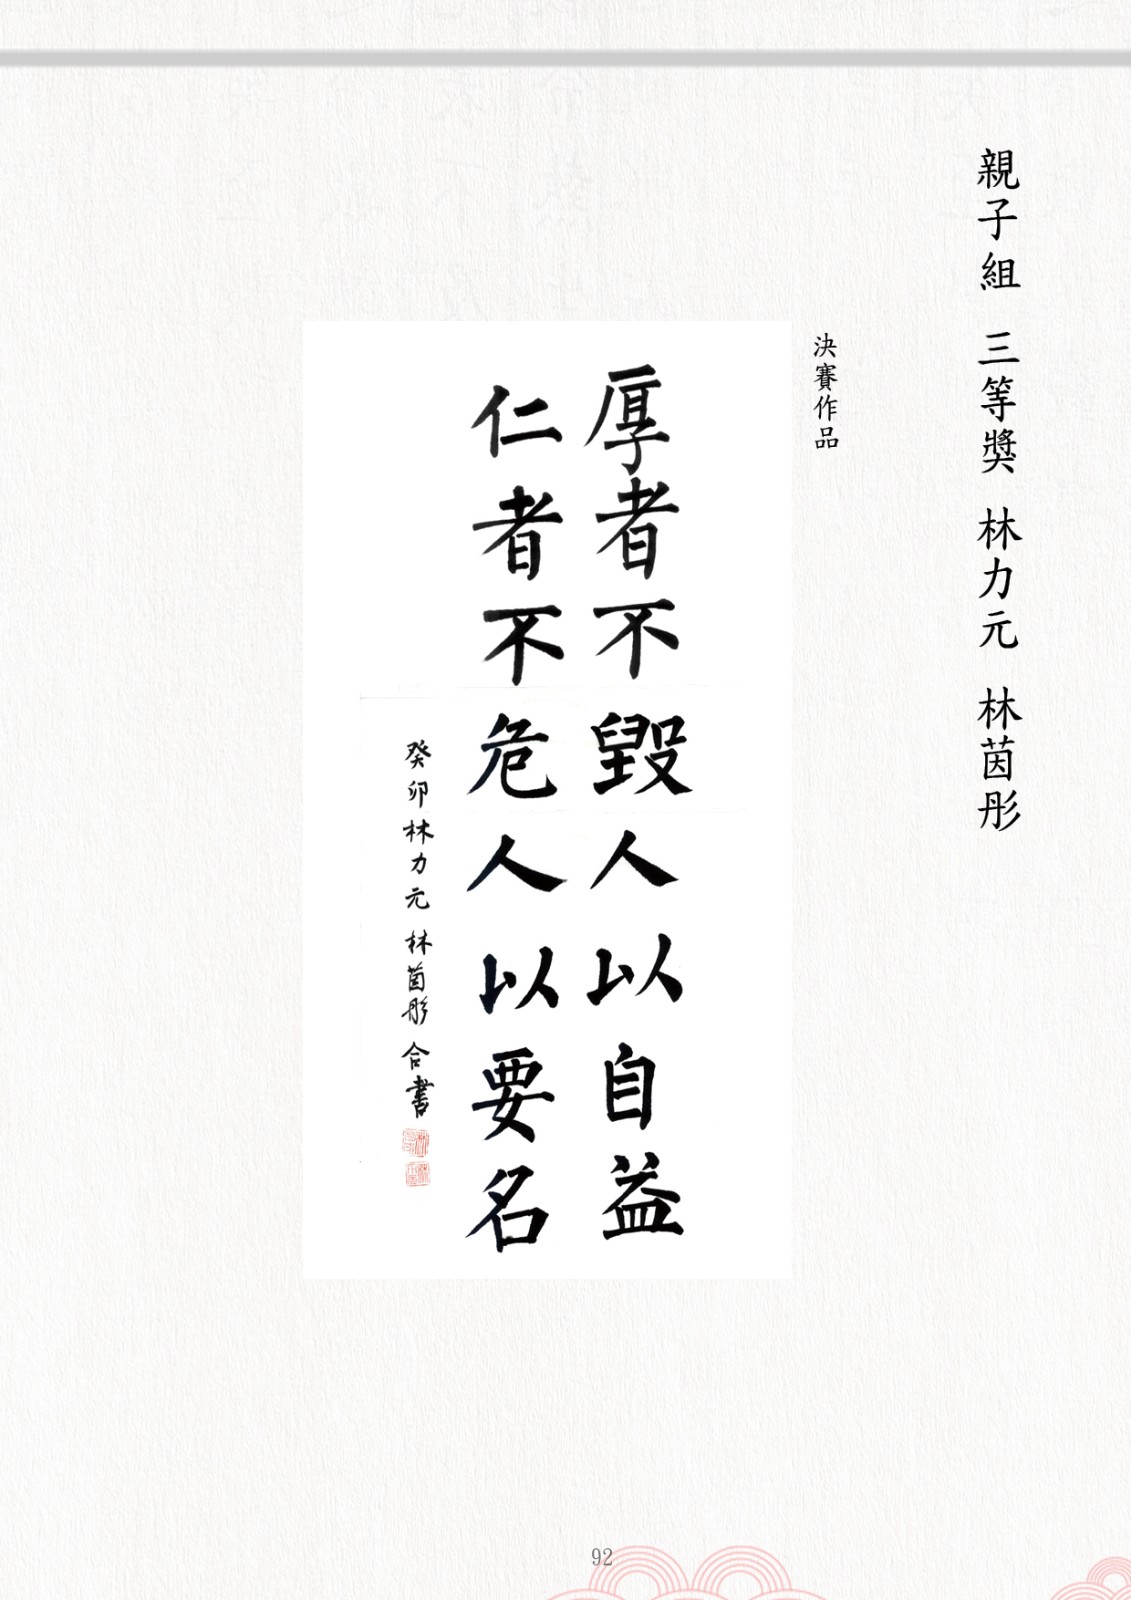 親子組 三等獎 林力元 林茵彤
決賽作品
厚者不毀人以自益
仁者不危人以要名
癸卯 林力元 林茵彤 合書
92